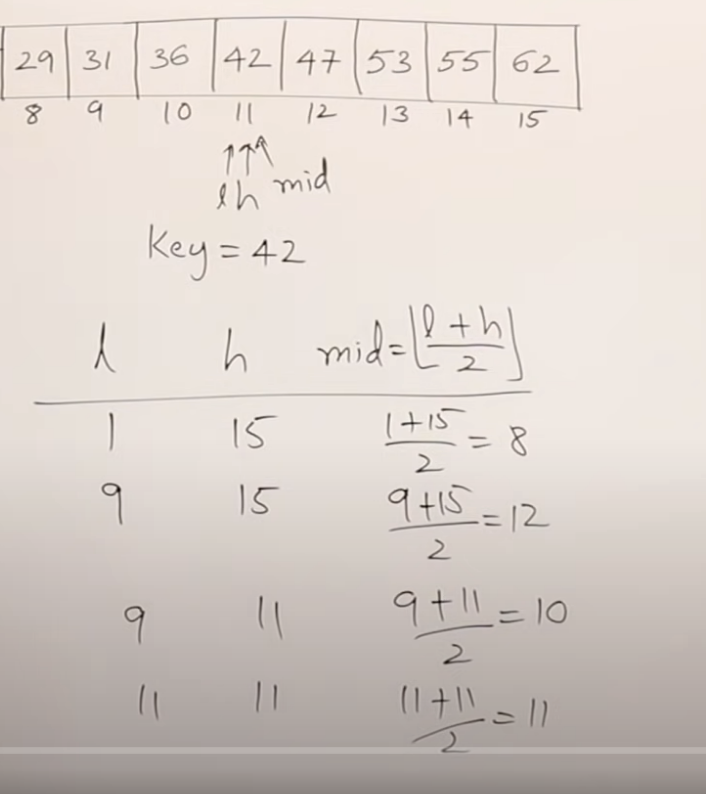 29 31 36 42 47 53 55 62
8 9 10 11 12 13 14 15
l h mid
Key = 42
l h mid = ⌊(l + h)/2⌋
1 15 (1+15)/2 = 8
9 15 (9+15)/2 = 12
9 11 (9+11)/2 = 10
11 11 (11+11)/2 = 11